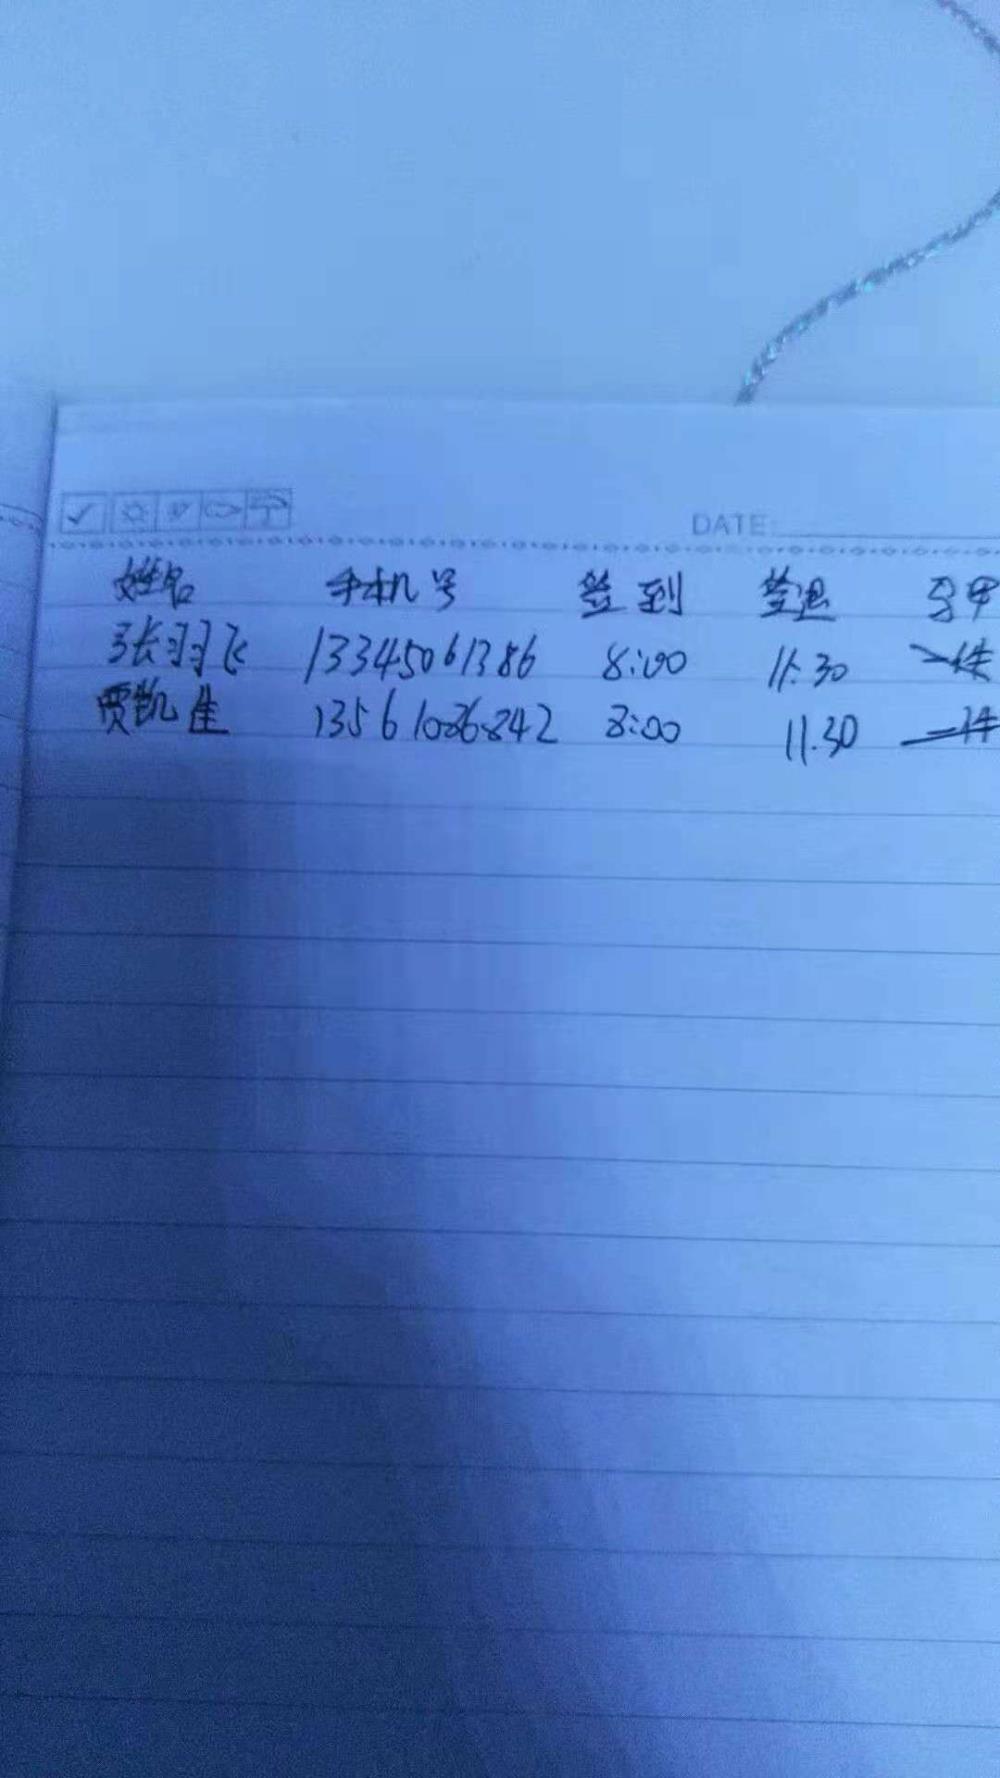 DATE:
姓名 手机号 签到 签退 马甲
张羽飞 13345061386 8:00 11:30 一件
贾凯佳 13561086842 8:00 11:30 一件